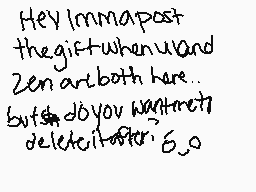 Hey Imma post
the gift when u and
Zen are both here..
but do you want me to
delete it after? 6_o